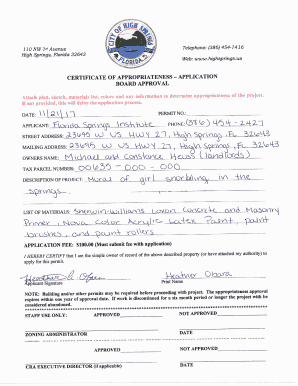 CITY OF HIGH SPRINGS
FLORIDA
110 NW 1st Avenue
High Springs, Florida 32643
Telephone: (386) 454-1416
Web: www.highsprings.us
CERTIFICATE OF APPROPRIATENESS – APPLICATION
BOARD APPROVAL
Attach plan, sketch, materials list, colors and any information to determine appropriateness of the project.
If not provided, this will delay the application process.
DATE: 11/21/17 PERMIT NO:
APPLICANT: Florida Springs Institute PHONE: (386) 454-2427
STREET ADDRESS: 23695 W US HWY 27, High Springs, FL 32643
MAILING ADDRESS: 23695 W US HWY 27, High Springs, FL 32643
OWNERS NAME: Michael and Constance (landlords)
TAX PARCEL NUMBER: 00635-000-000
DESCRIPTION OF PROJECT: Mural of girl snorkling in the
springs
LIST OF MATERIALS: Sherwin-Williams Loxon Concrete and Masonry
Primer, Nova Color Acrylic Latex Paint, paint
brushes, and paint rollers
APPLICATION FEE: $100.00 (Must submit fee with application)
I HEREBY CERTIFY that I am the simple owner of record of the above described property (or have attached my authority) to
apply for this permit.
Heather Obara
Applicant Signature Print Name
NOTE: Building and/or other permits may be required before proceeding with project. The appropriateness approval
expires within one year of approval date. If work is discontinued for a six month period or longer the project will be
considered abandoned.
STAFF USE ONLY: APPROVED NOT APPROVED
ZONING ADMINISTRATOR DATE
APPROVED NOT APPROVED
CRA EXECUTIVE DIRECTOR (if applicable) DATE